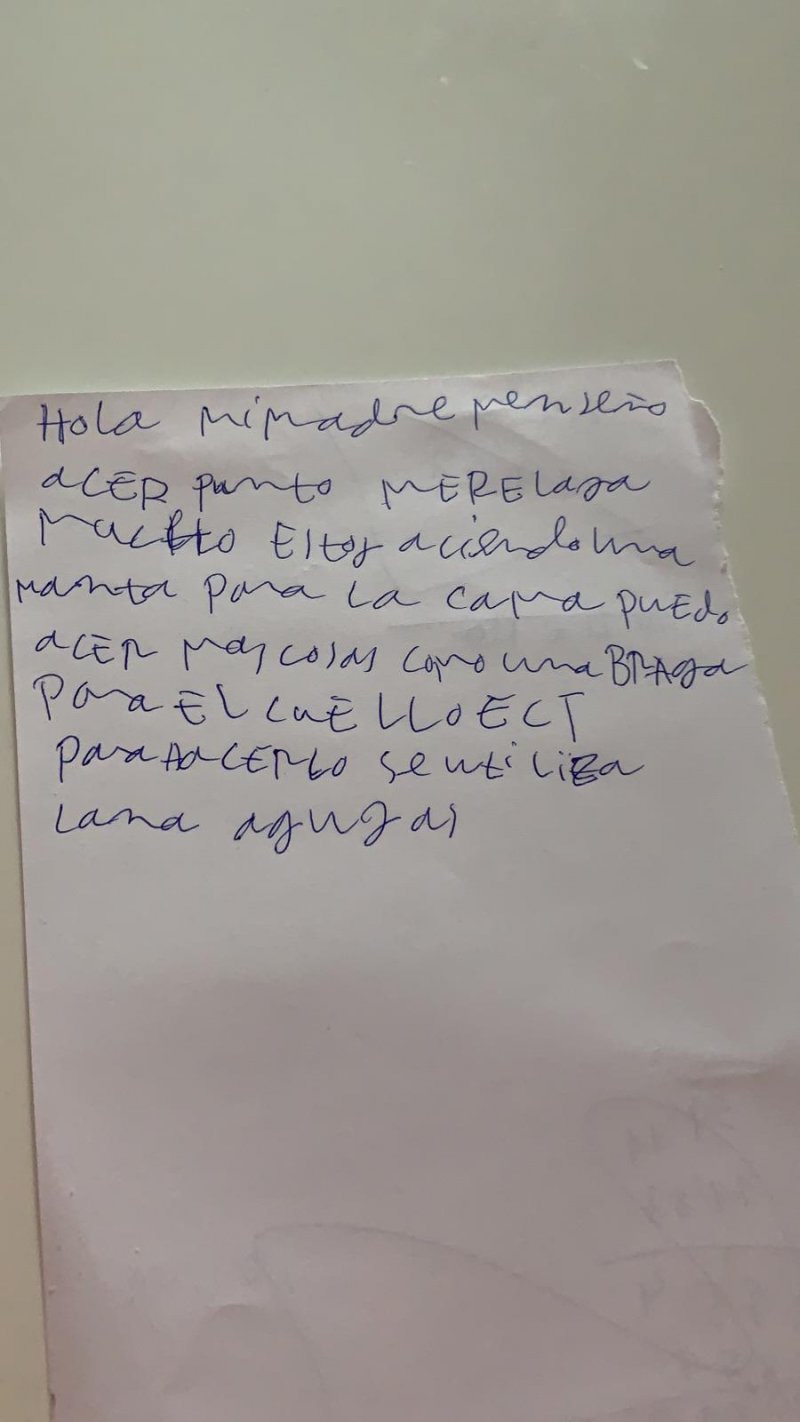 Hola mi madre menseño
acER punto MERElaja
mucHo Estoy aciendo una
manta para La cama puedo
acER mas cosas como una BRAga
para EL cuELLo ECT
para AdcERLo se utiliza
Lana agujas